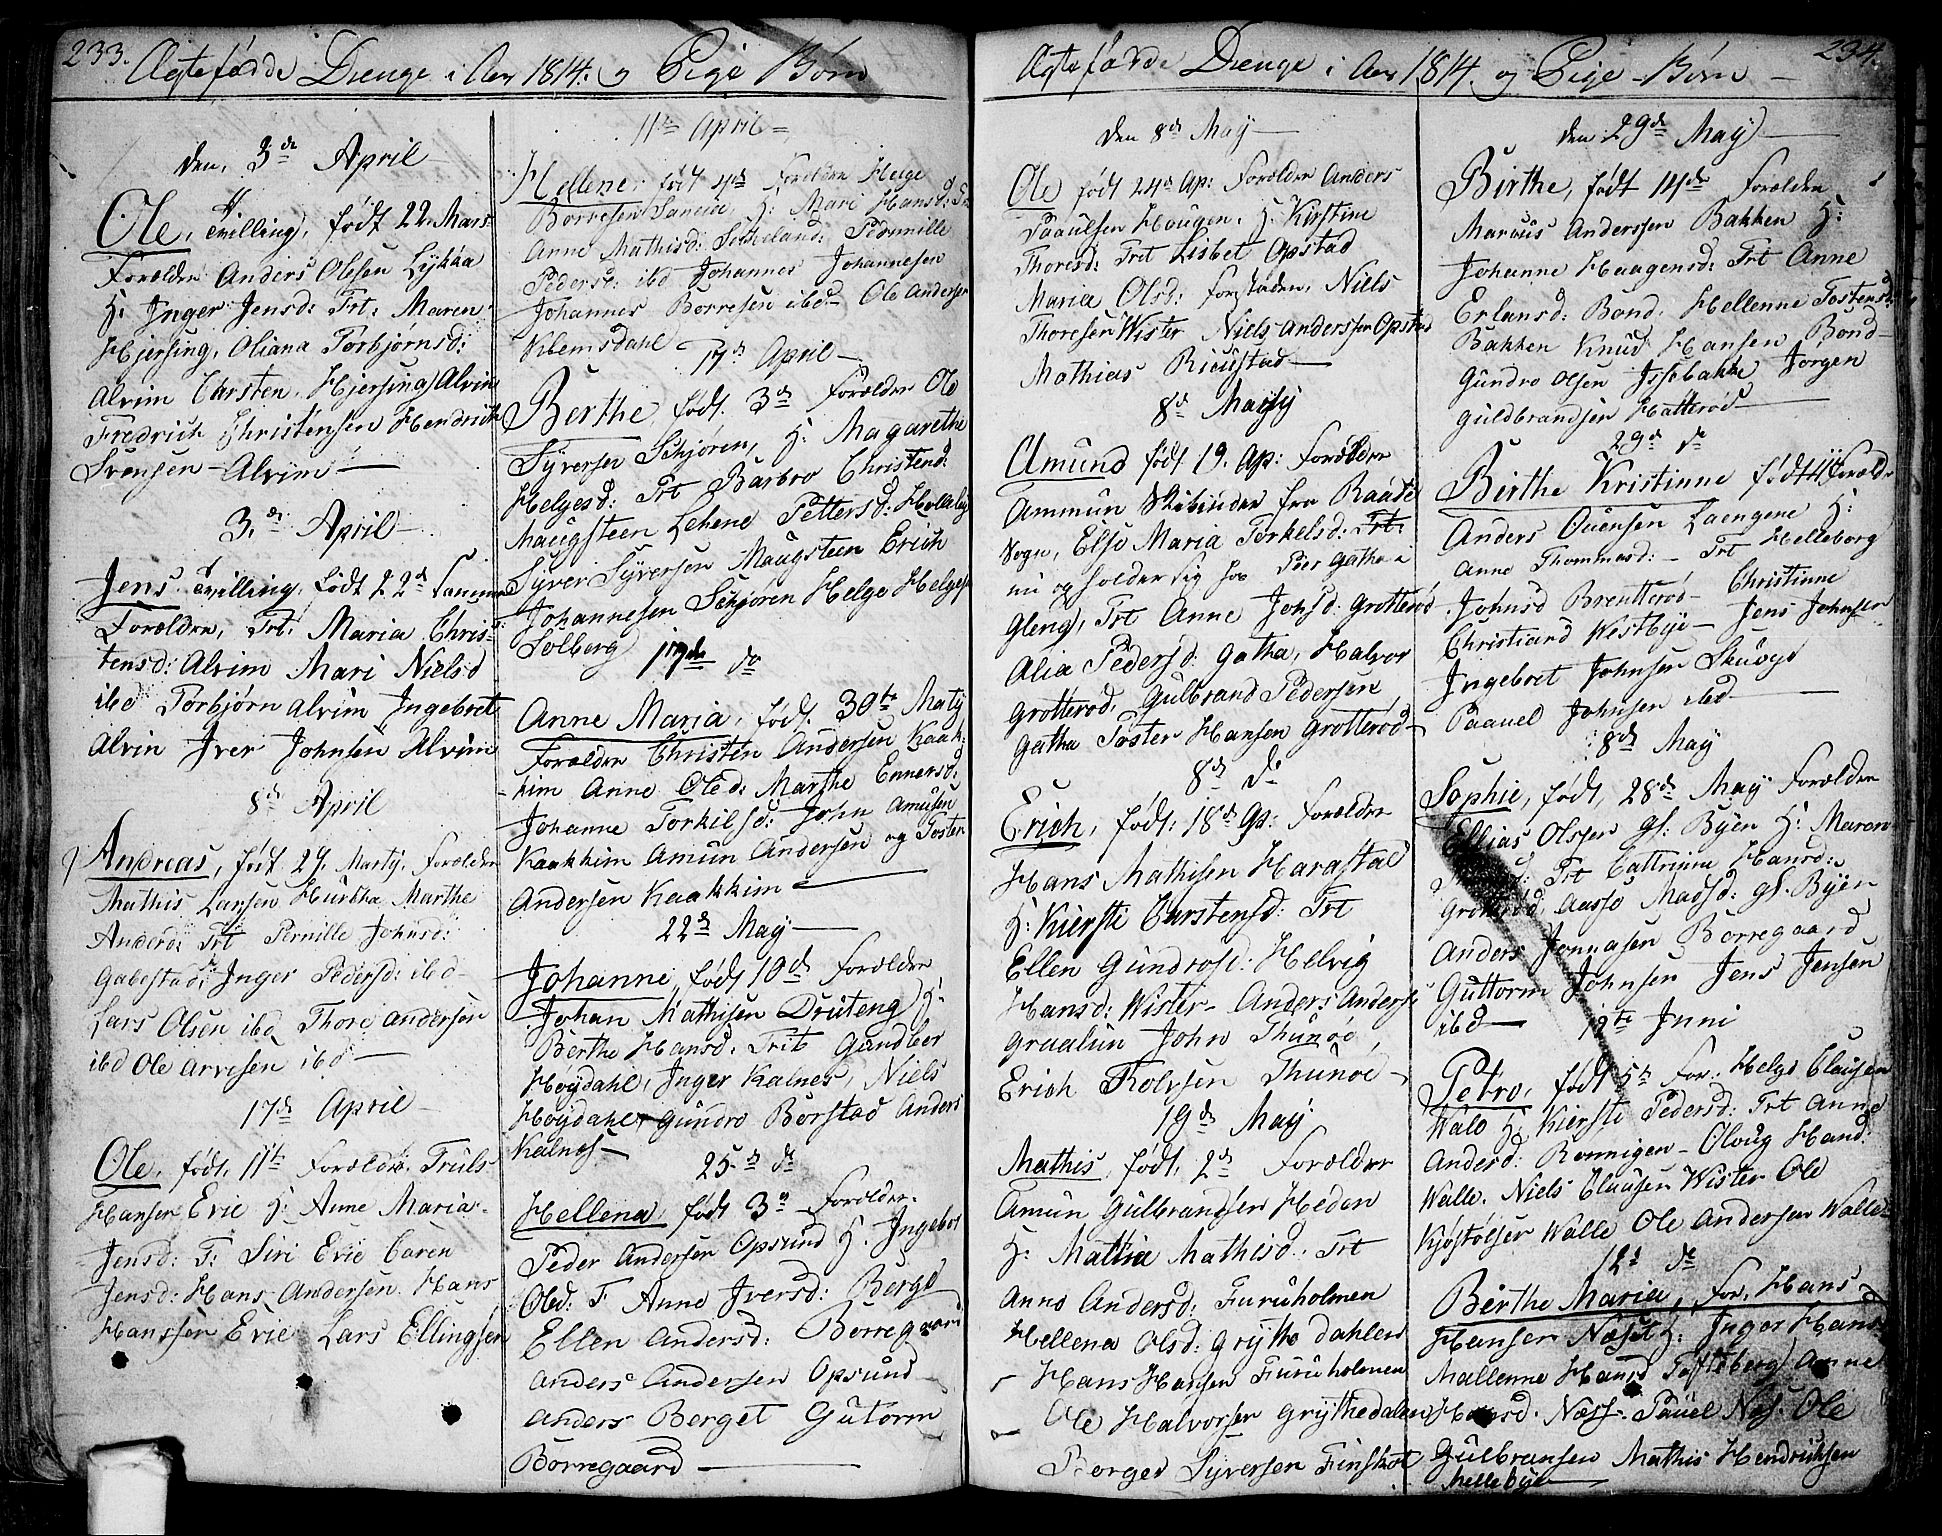 233.
Ægtefødde Drenge i Aar 1814. og Pige Børn
den, 3de April
Ole, Tvilling, født 22. Mars
Forældre Anders Olesen Lykka
H: Inger Jensd: Frt: Maren
Hjersing, Oliana Torbjørnsd:
Alvim Chrsten Hjersing Alvim
Fredrich Christensen Hendrich
Svensen - Alvim
3de April
Jens Tvilling, født 22de Samme
Forældre, Frt: Maria Chris-
tensd: Alvim Mari Nielsd
ibd Torbjørn Alvim Ingebret
Alvin Iver Johnsen Alvim
8de April
Andreas, født 29. Martij. Forældre
Mathis Larsen Hurkka Marthe
Anderd: Frt Pernille Johnsd:
Gabestad, Inger Pedersd: ibd
Lars Olsen ibd Thore Andersen
ibd Ole Arvesen ibd
17de April
Ole, født, 11te Forældre. Truls
Hansen Evie H: Anne Maria
Jensd: F: Siri Evie Caren
Jensd: Hans Andersen. Hans
Hanssen Evie Lars Ellingsen
11te April
Hellene, født 4de Forældre Helge
Borresen H: Mari Hansd:
Anne Mathisd: Pedernille
Pedersd: ibd Johannes Johannesen
Johannes Borresen ibd - Ole Andersen
Klemsdahl
17de April
Berthe, født. 3de Forældre Ole
Syversen Schjøren, H: Magarethe
Helgesd: Frt Barbro Christend:
Haugsteen Lehene Pettersd:
Syver Syversen Maugsteen Erich
Johannesen Schjøren Helge Helgesen
Solberg
17de do
Anne Maria, født. 30te Martij
Forældre Christen Andersen Kaak-
kim Anne Oled: Marthe Ennersd:
Johanne Torkilsd: John Amusen
Kaakkim Amun Andersen og Tosten
Andersen Kaakkim
22de May
Johanne, født 10de Forældre
Johan Mathisen Druteng H:
Berthe Hansd. Frt Gundbor
Høydahl, Inger Kalnes, Niels
Høydahl, Gundro Borstad Anders
Kalnes
25de do
Hellena, født 3de Forældre.
Peder Andersen Opsund H: Ingebor
Oled: F Anne Iversd: Berge
Ellen Andersd: Borregaard
Anders Andersen Opsund
Anders Berget Gutorm
Borregaard
234.
Ægtefødde Drenge i Aar 1814. og Pige-Børn
den 8de May
Ole født 24de Ap: Forældre Anders
Paaulsen Haugen. H: Kirstine
Thoresd: Frt Lisbet Opstad
Maria Olsd: Forstaden, Niels
Thoresen Wister Niels Anderssen Opstad
Mathias
8de May
Amund født 19. Ap: Forældre
Ammun fra Raade
Sogn, Else Maria Torkelsd: Frt:
nu og holder sig hos Peer Gatha i
Gleng, Frt Anne Johsd: Grotterød
Alia Pedersd. Gatha, Halvor
Grotterød, Gulbrand Pedersen
Gatha Toster Hansen Grotterød
8de do
Erich, født: 18de Ap: Forældre
Hans Mathisen Harastad
H: Kiersti Carstensd: Frt
Ellen Gundrosd: Helvig
Hansd: Wister - Anders Anders
Graalun John Thunøe,
Erich Rolvsen Thunøe
19de May
Mathis, født, 2de Forældre
Amun Gulbrandsen Heden
H: Mallia Mathisd: Frt
Anne Andersd: Furuholmen
Hellena Olsd: Grytte Dahlen
Hans Hansen Furuholmen
Ole Halvorsen Grythedalen
Borger Syversen
den 29de May
Birthe, født 14de Forældre
Marcus Anderssen Bakken H:
Johanne Haagensd: Frt Anne
Erlansd: Bond. Hellenne Tostensd:
Bakken Knud Hansen Bond
Gundro Olsen Issebakke Jørgen
Guldbrandsen Hatterød
29de do
Birthe Kristinne født Forældre
Anders Ouensen Laengene H:
Anne Thommesd: - Frt Helleborg
Johnsd Brentterød - Christinne
Christiansd Westbye - Jens Johnsen
Ingebret Johnsen Skuvgd
Paauel Johnsen ibd
8de May
Sophie, født, 28de May Forældre
Ellias Olsen gl: Byen H: Maren
Frt Cattrinna Hansd:
Grotterød, Aasse Madsd: gl. Byen
Anders Jonnasen Borregaard
Guttorm Johnsen Jens Jensen
ibd
12te Juni
Petro, født 5te For: Helge Clausen
Wale H: Kiersti Pedersd: Frt Anne
Andersd: Ronnigen - Oloug Hansd:
Walle. Niels Clausen Wister Ole
Kjøstolsen Walle Ole Andersen Walle
12te do
Berthe Maria, For. Hans
Hansen Næs H: Inger Hansd
Mallenne Hansd Anne
Hansd. Næss - Pauel Næs. Ole
Gulbransen Mathis Hendriksen
Hellebye